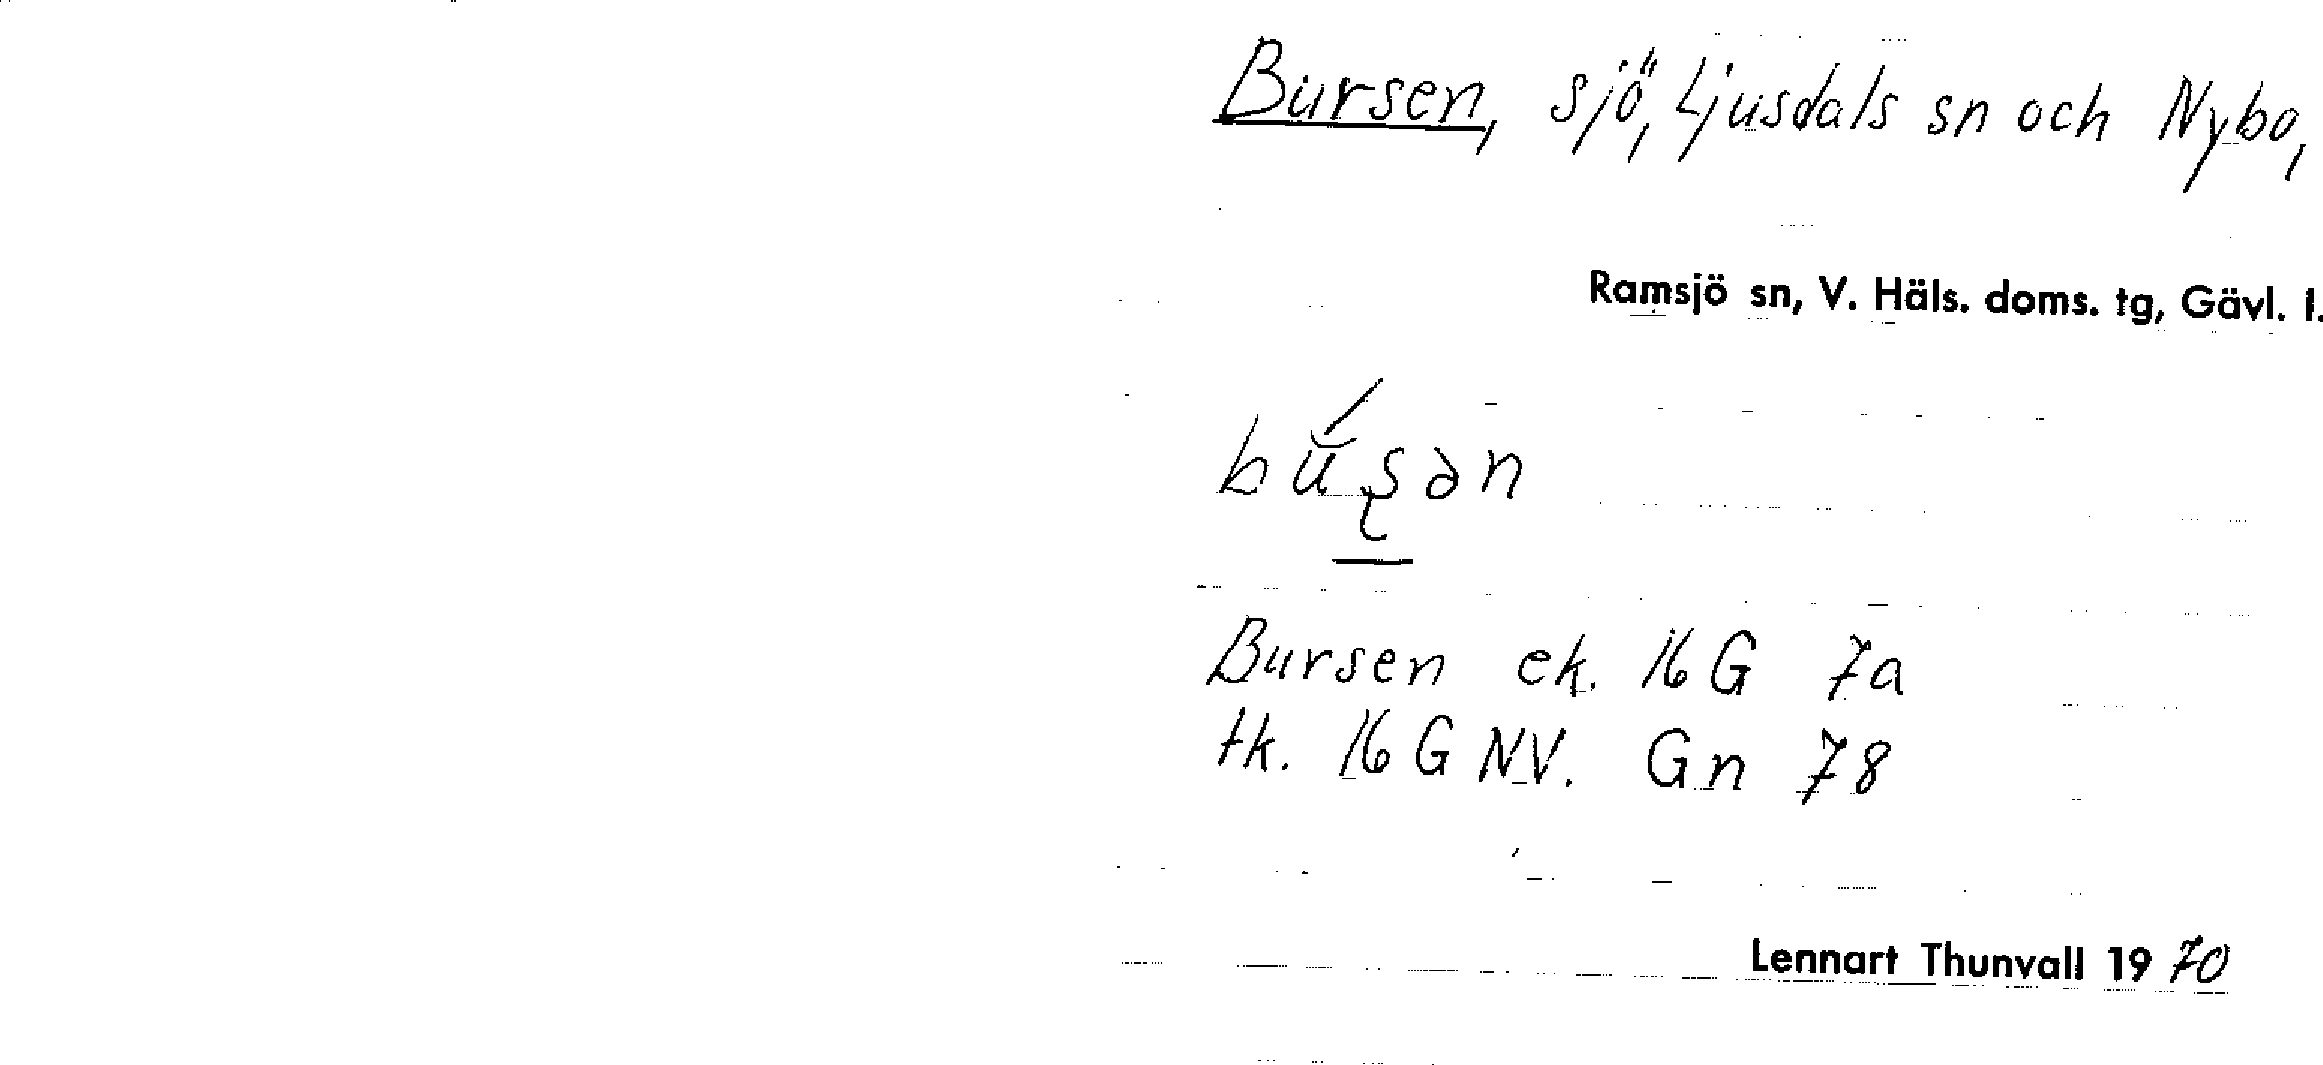 Bursen, sjö, Ljusdals sn och Nybo,
Ramsjö sn, V. Häls. doms. tg, Gävl. l.
bŭ́ʂən
Bursen ek. 16 G 7a
tk. 16 G NV. Gn 78
Lennart Thunvall 1970